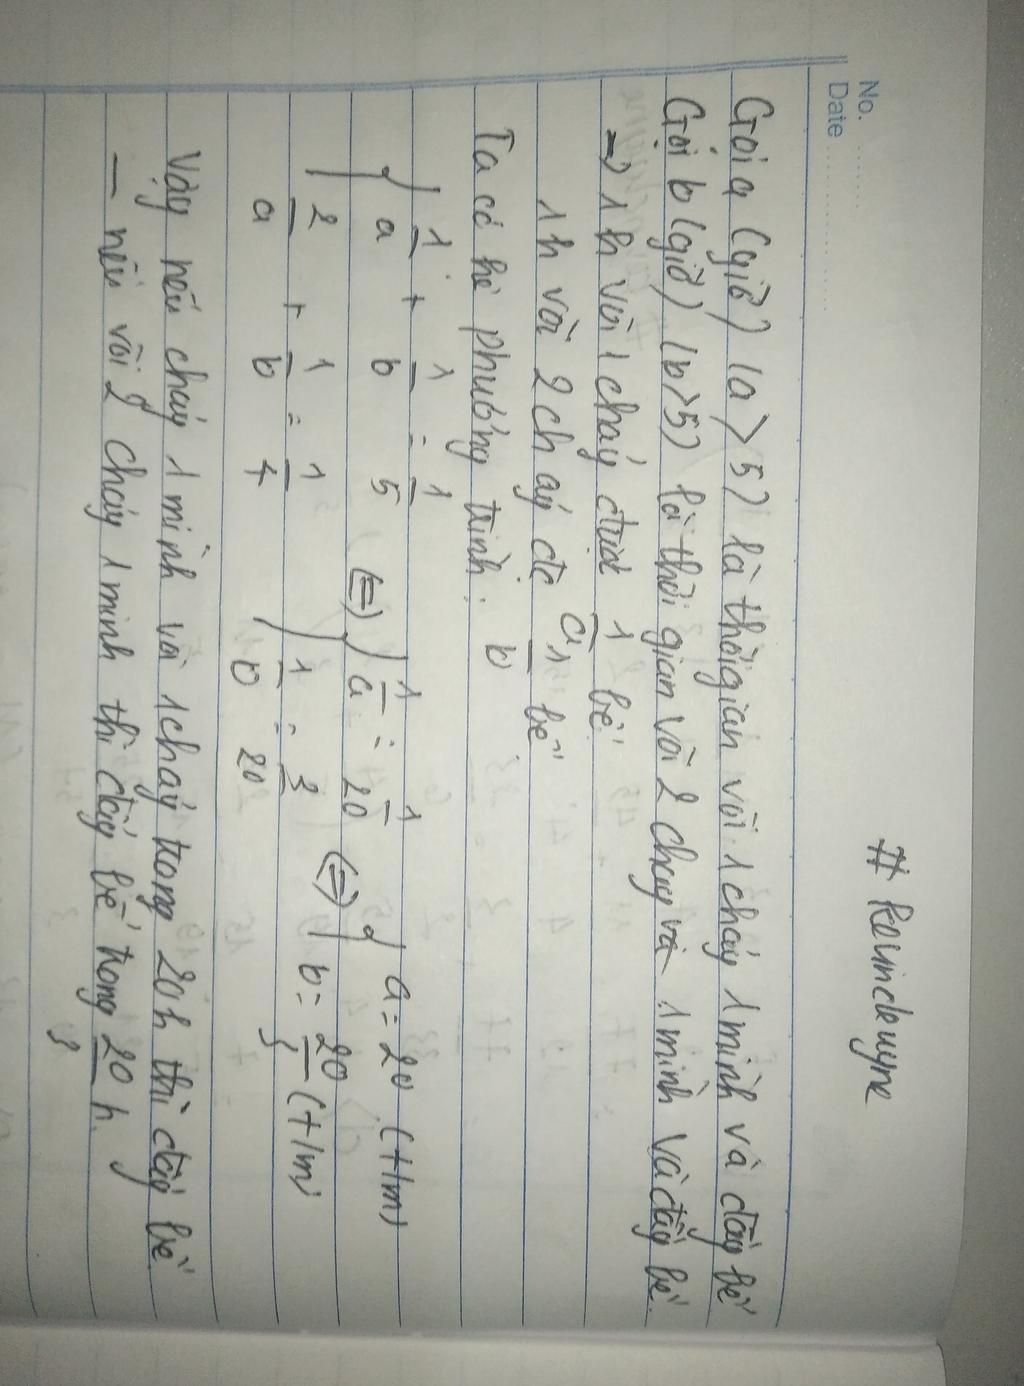 No. ........
Date ....................
# kevindewyne
Gọi a (giờ) (a > 5) là thời gian vòi 1 chảy 1 mình và đầy bể
Gọi b (giờ) (b > 5) là thời gian vòi 2 chảy và 1 mình và đầy bể.
=> 1h vòi 1 chảy được 1/a bể
1h vòi 2 chảy đc 1/b bể
Ta có hệ phương trình:
{ 1/a + 1/b = 1/5
{ 2/a + 1/b = 1/4 <=> { 1/a = 1/20 ; 1/b = 3/20 <=> { a = 20 (t/m) ; b = 20/3 (t/m)
Vậy nếu chảy 1 mình vòi 1 chảy trong 20h thì đầy bể
— nếu vòi 2 chảy 1 mình thì đầy bể trong 20/3 h.